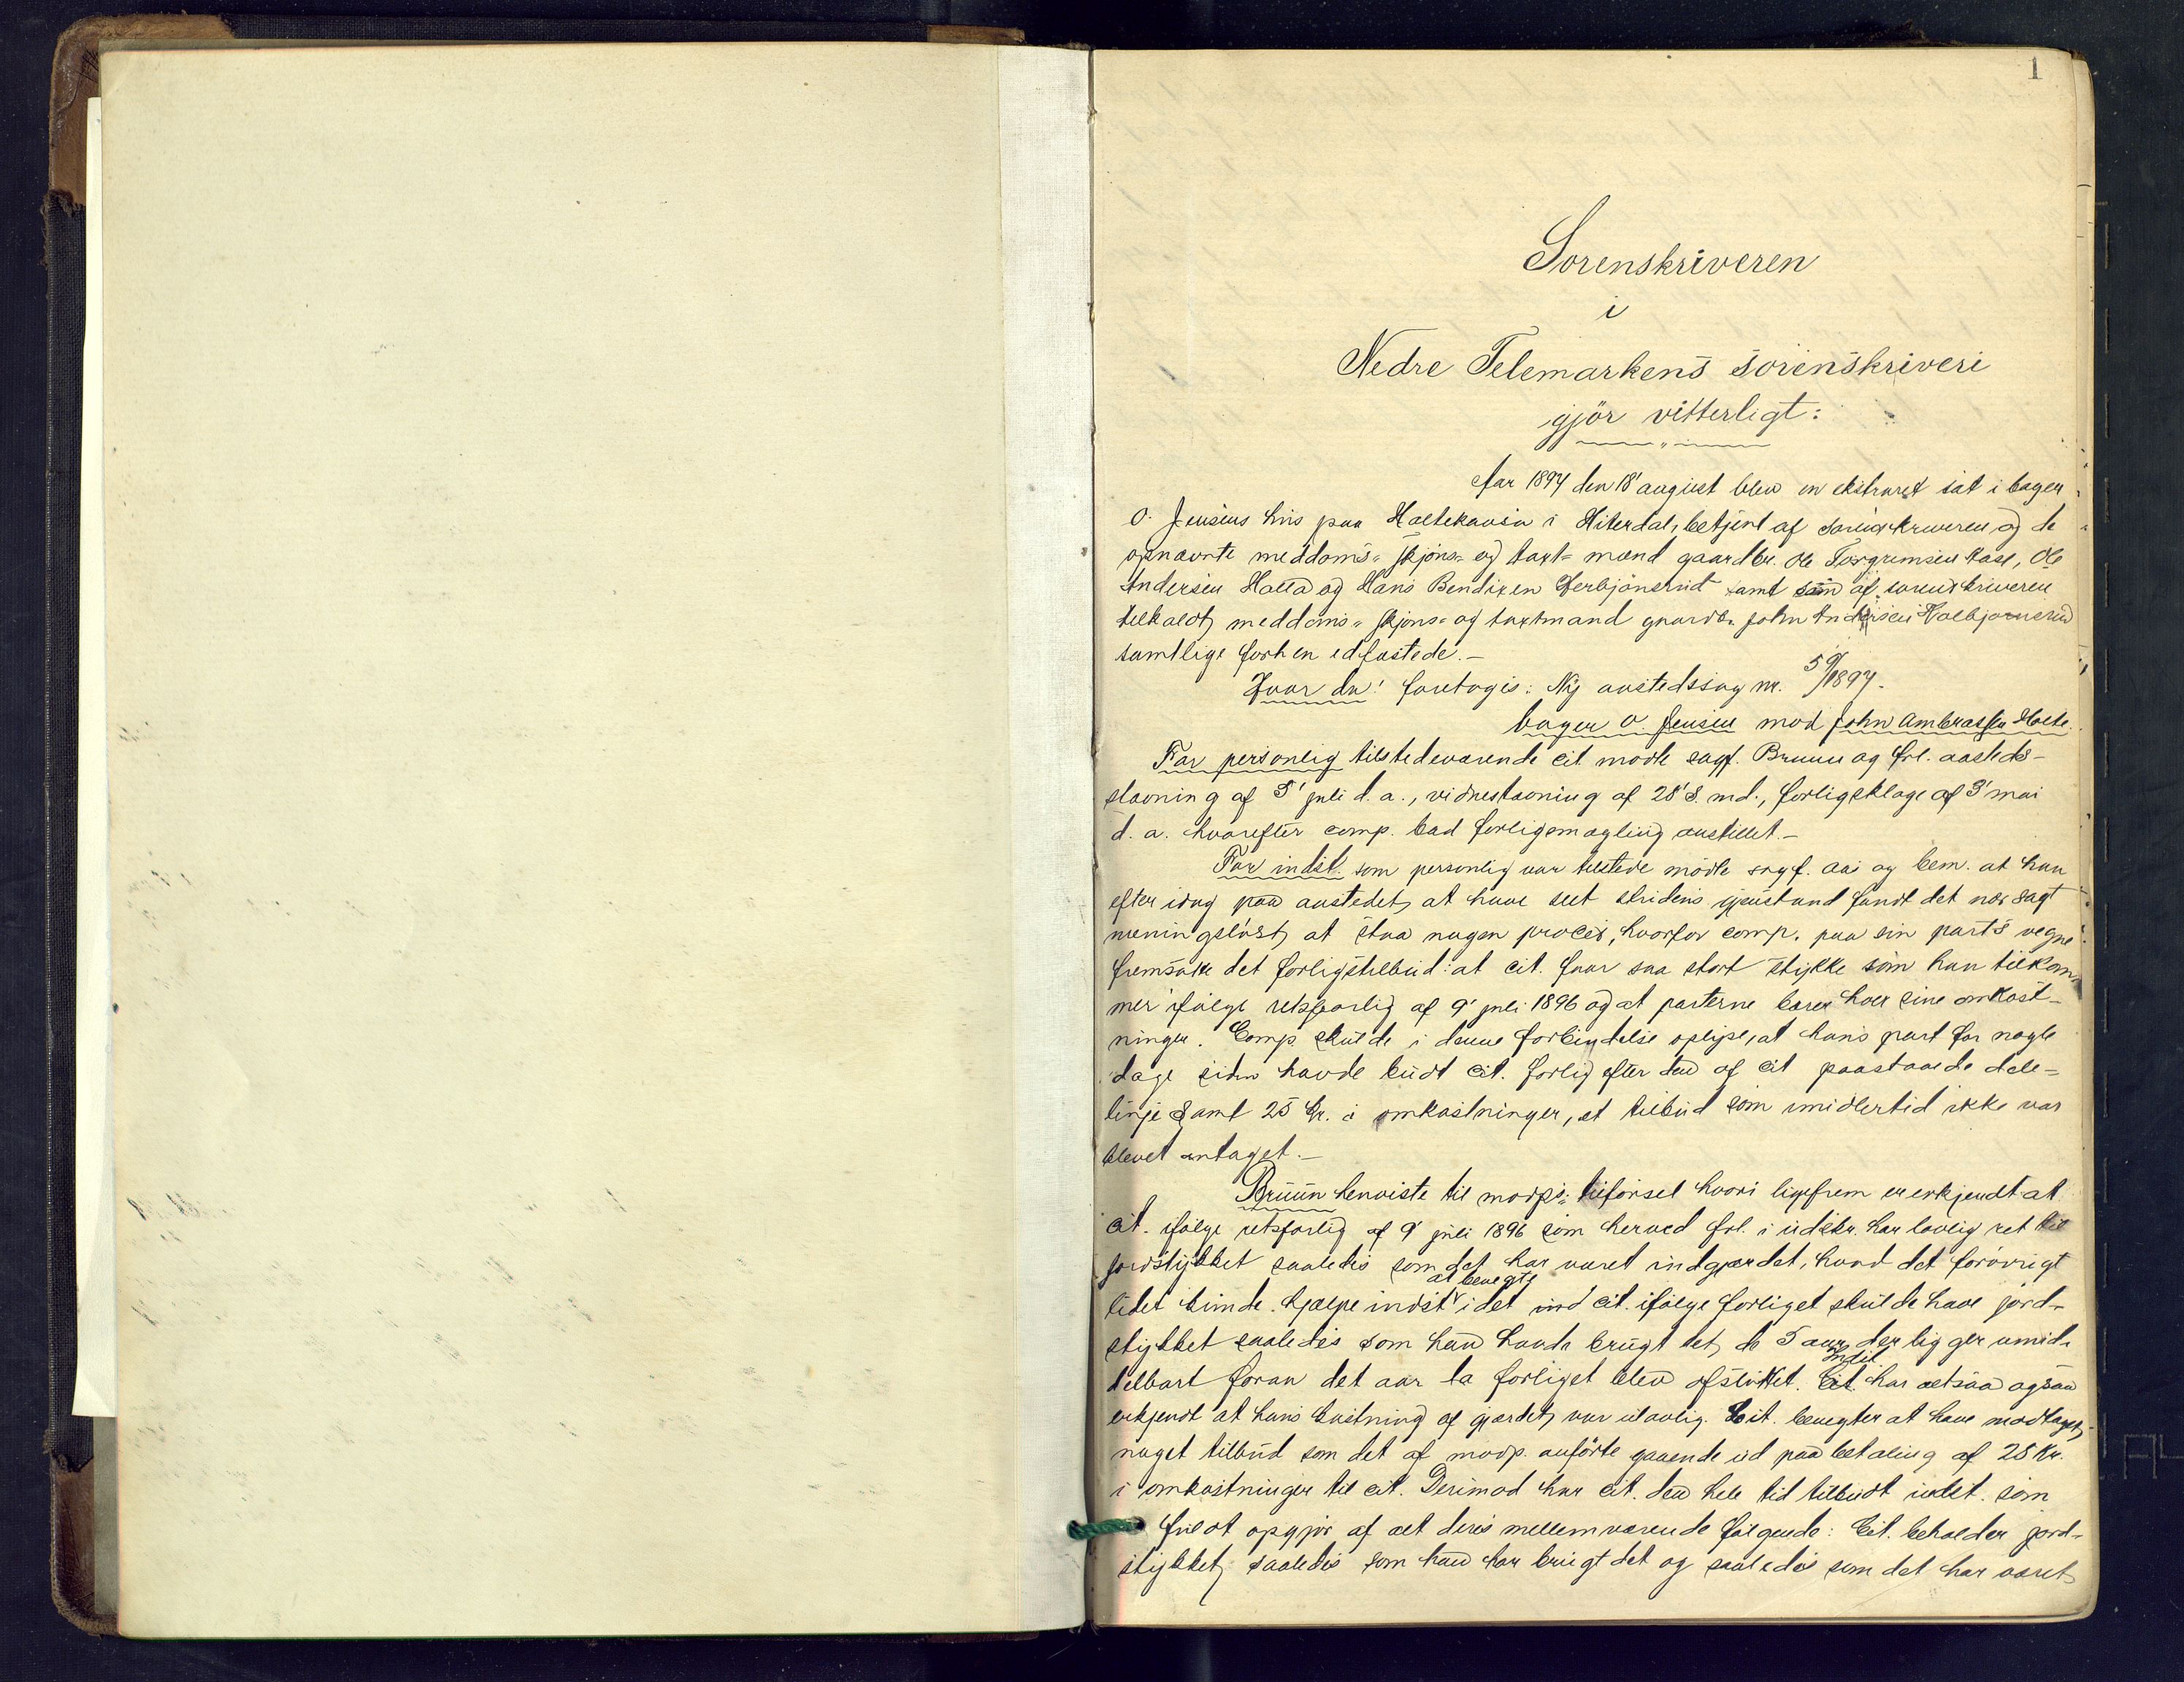 1
Sorenskriveren
i
Nedre Telemarkens sorenskriveri
gjör vitterligt:
Aar 1897 den 18' august blev en ekstraret sat i bager
O. Jensens hus paa Haltekaasa i Hiterdal, betjent af sorenskriveren og de
opnævnte meddoms- skjøns- og taxt- mænd gaardbr. Ole Torgrimsen Kase, Ole
Andersen Halla og Hans Bendixen Herbjönsrud samt som af sorenskriveren
tilkaldt meddoms- skjøns- og taxtmand gaardbr. John Andersen Kolbjörnsrud
samtlige forhen edfæstede.-
Hvor da! foretoges: Ny aastedssag nr. 59/1897.
bager O Jensen mod John Ambrossen Holte.
For personlig tilstedeværende cit. mødte sagf. Bruun og frl. aasteds-
stævning af 5' juli d. a., vidnestævning af 28' s. md., forligsklage af 3' mai
d. a. hvorefter comp. bad forligsmægling anstillet.-
For indst. som personlig var tilstede mødte sagf. Aas og bem. at han
efter idag paa aastedet at have seet stridens gjenstand fandt det nær sagt
meningsløst at støa nogen proces, hvorfor comp. paa sin parts vegne
fremsatte det forligstilbud: at cit. faar saa stort stykke som han tilkom-
mer ifølge retsforlig af 9' juli 1896 og at parterne bærer hver sine omkost-
ninger. Comp. skulde i denne forbindelse oplyse, at hans part for nogle
dage siden havde budt cit. forlig efter den af cit paastaaede dele-
linje samt 25 kr. i omkostninger, et tilbud som imidlertid ikke var
blevet antaget.-
Bruun henviste til modps. tilförsel hvori ligefrem er erkjendt at
cit. ifølge retsforlig af 9' juli 1896 som herved frl. i udskr. har lovlig ret til
jordstykket saaledes som det har været indgjærdet, hvad det forövrigt
at benegte
lidet kunde hjælpe indst. idet ind cit. ifølge forliget skulde have jord-
stykket saaledes som han havde brugt det de 5 aar, der ligger umid-
indst
delbart foran det aar da forliget blev afsluttet. Cit. har altsaa ogsaa
erkjendt at hans kastning af gjærdet var ulovlig. Cit. benegter at have modtaget
noget tilbud som det af modp. anførte gaaende ud paa betaling af 25 Kr.
i omkostninger til cit. Derimod har cit. den hele tid tilbudt indst. som
fuldt opgjör af alt deres mellemværende følgende: Cit. beholder jord-
stykket, saaledes som han har brugt det og saaledes som det har været